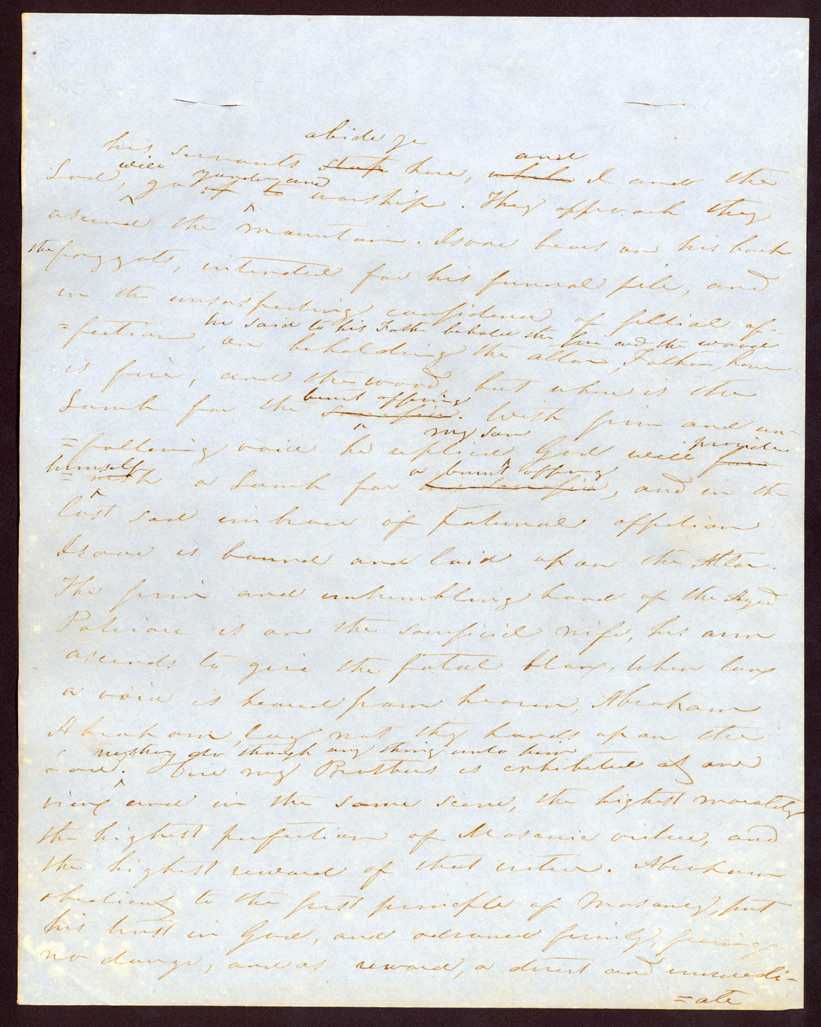 abide ye
his servants stop here, and while I and the
Lad, will go yonder and of to worship. They approach they
ascend the mountain. Isaac bears on his back
the faggots, intended for his funeral pile, and
in the unsuspecting confidence of fillial af-
he said to his Father behold the fire and the wood
=fection, on beholding the altar, Father, here
is fire, and the wood but where is the
burnt offering
Lamb for the sacrifice. With firm and un-
my son provide
=faltering voice he replied God will
himself a burnt offering
a Lamb for, and in the
last sad embrace of Paternal affection
Isaac is bound and laid upon the Altar.
The firm and untrembling hand of the Aged
Patriarc is on the sacrificial nife, his arm
ascends to give the fatal blow, when low
a voice is heard from heaven, Abraham
Abraham, lay not thy hands upon the
neither do though any thing unto him
Here my Brothers is exhibited at one
view and in the same scene, the highest morality
the highest perfection of Masonic virtue, and
the highest reward of that virtue. Abraham
obedient to the first principle of Masonry, put
his trust in God, and advanced firmly, fearing
no danger, and as reward, a direct and immedi-
=ate